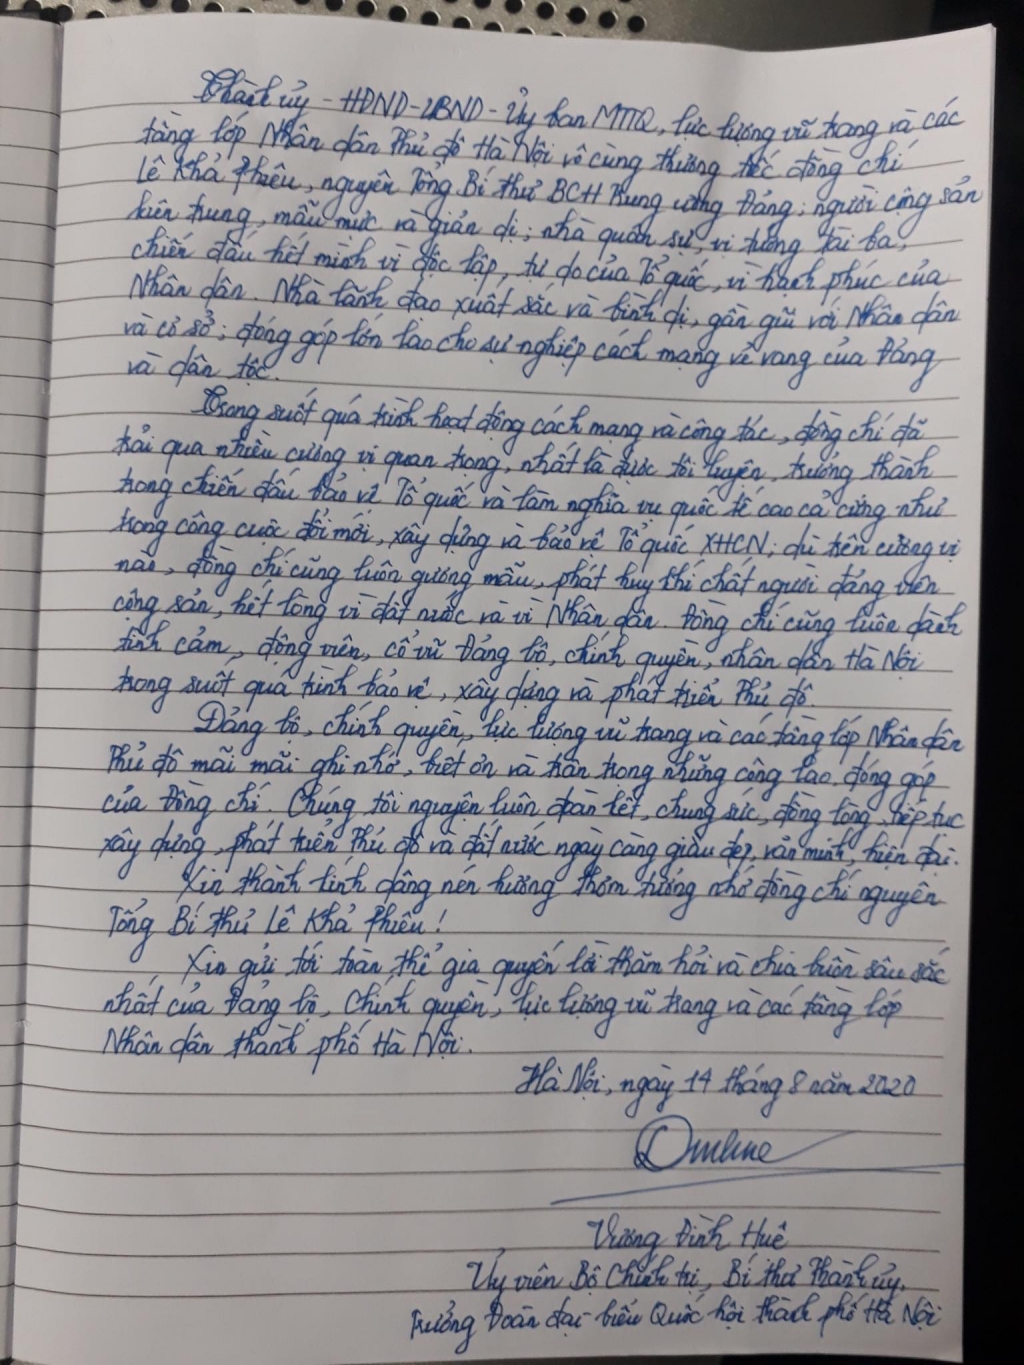 Thành ủy - HĐND - UBND - Ủy ban MTTQ, lực lượng vũ trang và các
tầng lớp Nhân dân Thủ đô Hà Nội vô cùng thương tiếc đồng chí
Lê Khả Phiêu, nguyên Tổng Bí thư BCH Trung ương Đảng; người cộng sản
kiên trung, mẫu mực và giản dị; nhà quân sự, vị tướng tài ba,
chiến đấu hết mình vì độc lập, tự do của Tổ quốc, vì hạnh phúc của
Nhân dân. Nhà lãnh đạo xuất sắc và bình dị, gần gũi với Nhân dân
và cơ sở; đóng góp lớn lao cho sự nghiệp cách mạng vẻ vang của Đảng
và dân tộc.
Trong suốt quá trình hoạt động cách mạng và công tác, đồng chí đã
trải qua nhiều cương vị quan trọng, nhất là được tôi luyện, trưởng thành
trong chiến đấu bảo vệ Tổ quốc và làm nghĩa vụ quốc tế cao cả cũng như
trong công cuộc đổi mới, xây dựng và bảo vệ Tổ quốc XHCN; dù trên cương vị
nào, đồng chí cũng luôn gương mẫu, phát huy khí chất người đảng viên
cộng sản, hết lòng vì đất nước và vì Nhân dân. Đồng chí cũng luôn dành
tình cảm, động viên, cổ vũ Đảng bộ, chính quyền, nhân dân Hà Nội
trong suốt quá trình bảo vệ, xây dựng và phát triển Thủ đô.
Đảng bộ, chính quyền, lực lượng vũ trang và các tầng lớp Nhân dân
Thủ đô mãi mãi ghi nhớ, biết ơn và trân trọng những công lao, đóng góp
của Đồng chí. Chúng tôi nguyện luôn đoàn kết, chung sức, đồng lòng, tiếp tục
xây dựng, phát triển Thủ đô và đất nước ngày càng giàu đẹp, văn minh, hiện đại.
Xin thành kính dâng nén hương thơm tưởng nhớ đồng chí nguyên
Tổng Bí thư Lê Khả Phiêu!
Xin gửi tới toàn thể gia quyến lời thăm hỏi và chia buồn sâu sắc
nhất của Đảng bộ, Chính quyền, lực lượng vũ trang và các tầng lớp
Nhân dân thành phố Hà Nội.
Hà Nội, ngày 14 tháng 8 năm 2020
Vương Đình Huệ
Ủy viên Bộ Chính trị, Bí thư Thành ủy,
Trưởng Đoàn đại biểu Quốc hội thành phố Hà Nội